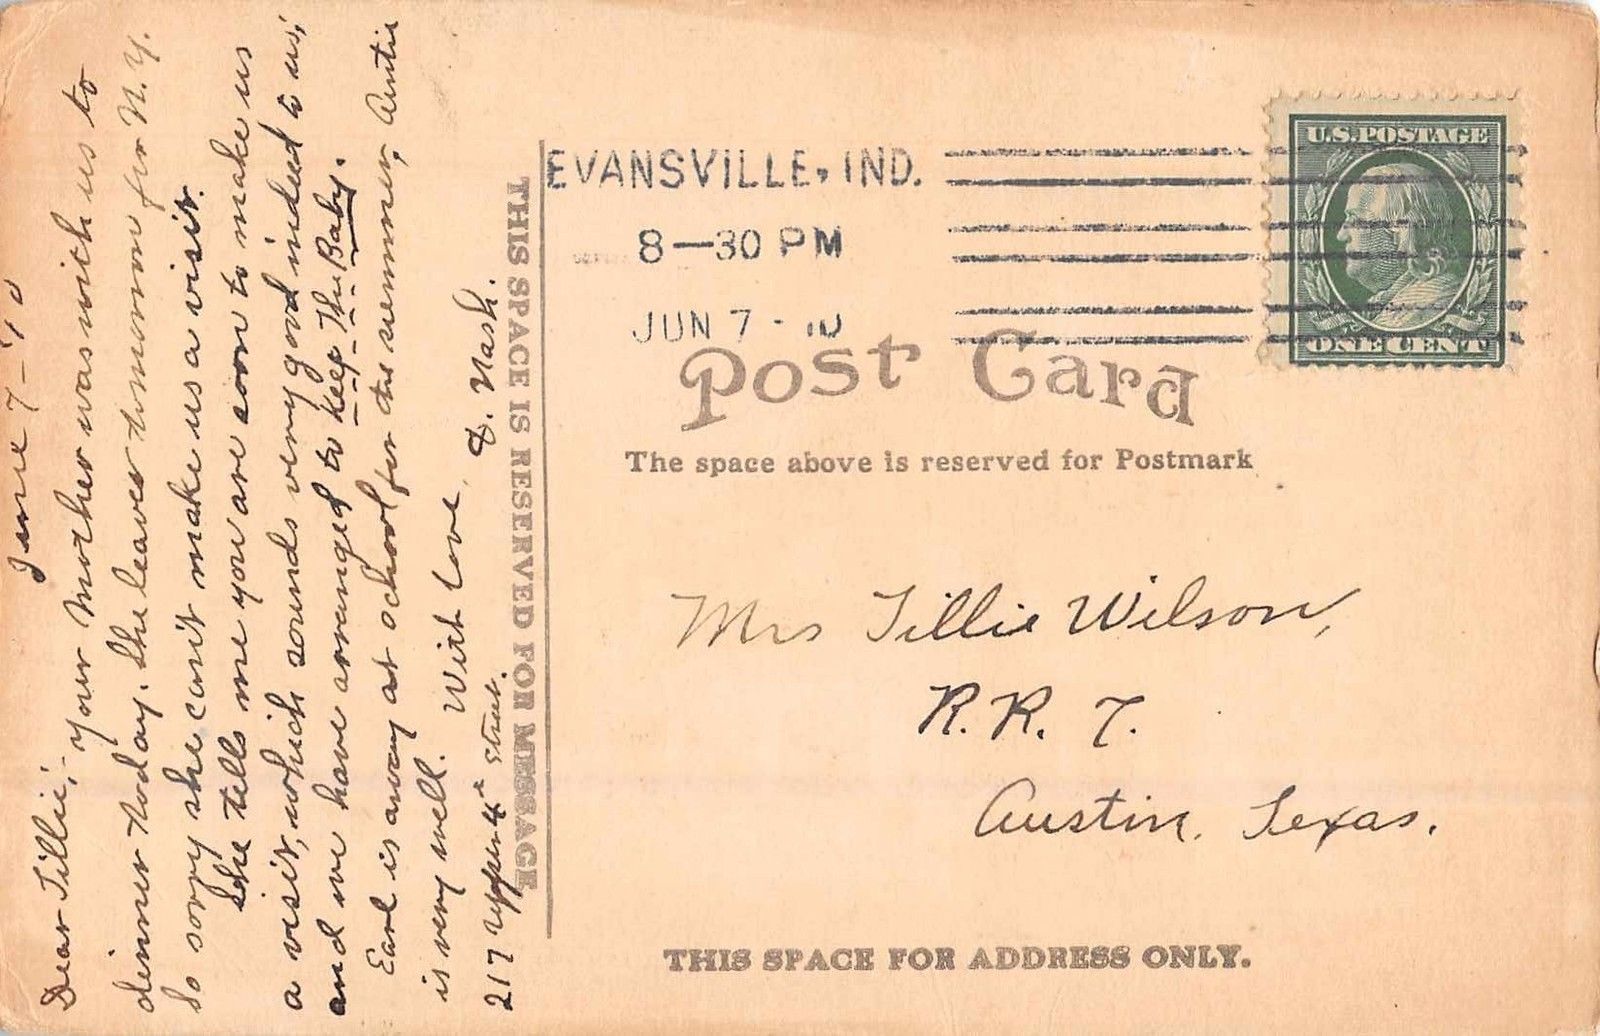 June 7-'10
Dear Tillie;- your mother was with us to
dinner today. She leaves tomorrow for N.Y.
So sorry she can't make us a visit.
She tells me you are soon to make us
a visit, which sounds very good indeed to us,
and we have arranged to keep The Baby.
Earl is away at school for the summer, Auntie
is very well. With love,
217 Upper 4th street. S. Nash.
THIS SPACE IS RESERVED FOR MESSAGE
EVANSVILLE, IND.
8-30 PM
JUN 7 - 10
U.S. POSTAGE
ONE CENT
Post Card
The space above is reserved for Postmark
Mrs Tillie Wilson,
R.R. 7.
Austin, Texas.
THIS SPACE FOR ADDRESS ONLY.